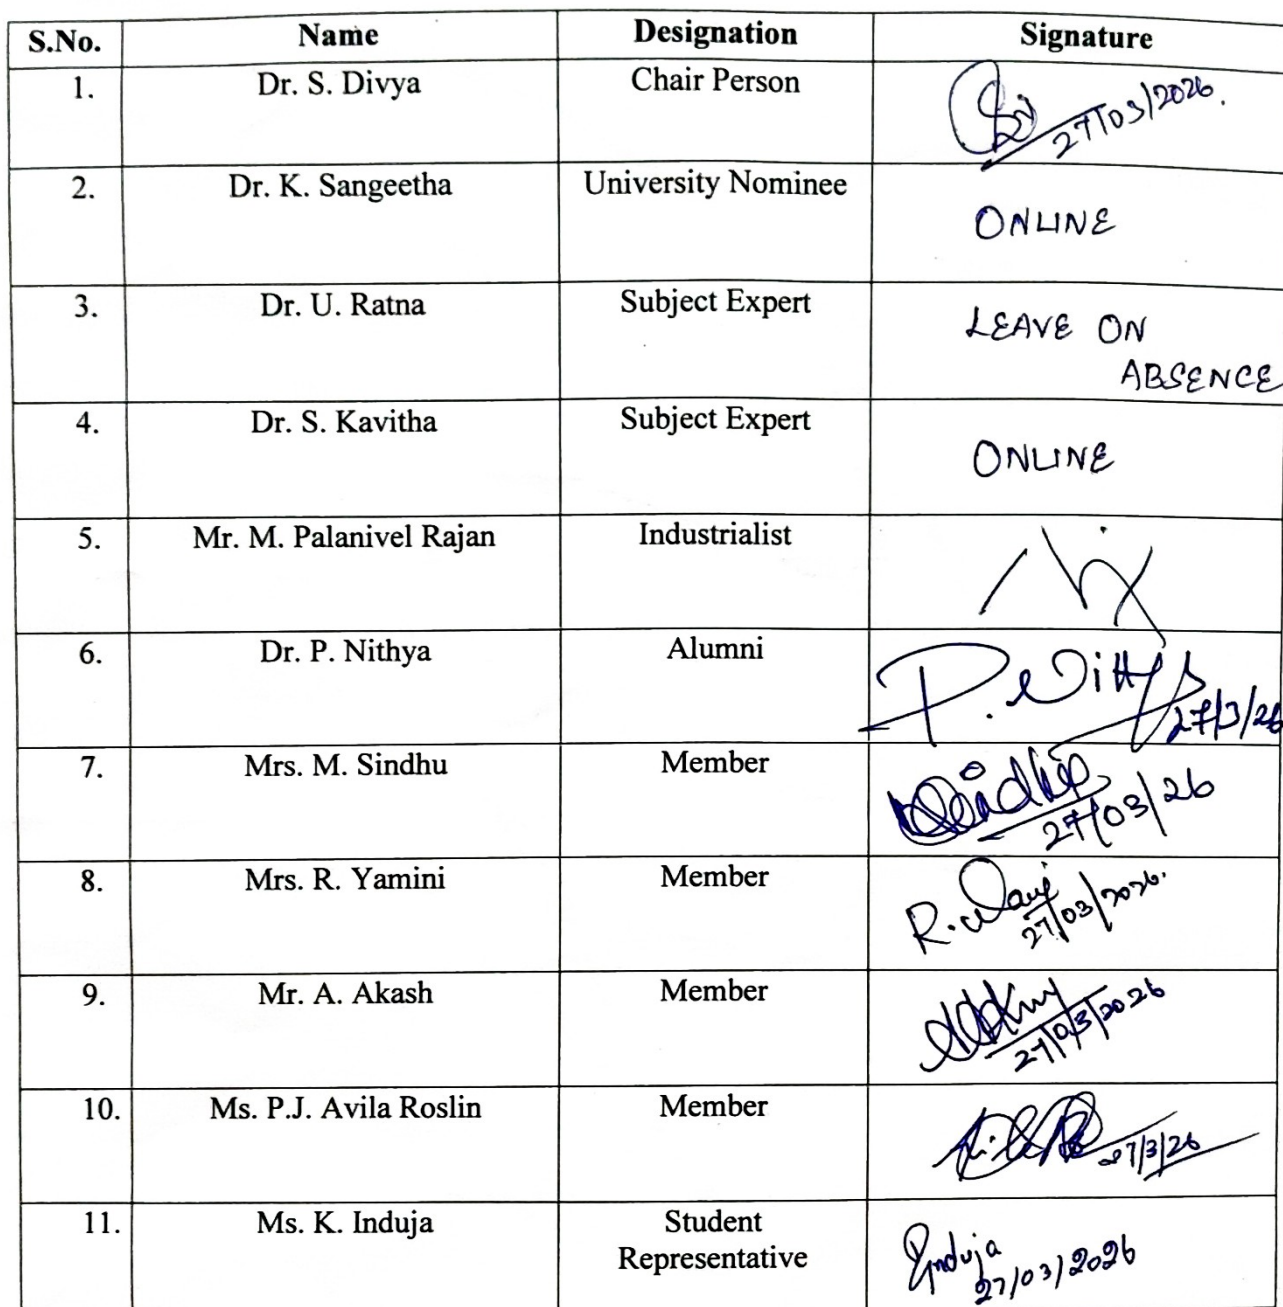 S.No. Name Designation Signature
1. Dr. S. Divya Chair Person
27/03/2026.
2. Dr. K. Sangeetha University Nominee ONLINE
3. Dr. U. Ratna Subject Expert LEAVE ON
ABSENCE
4. Dr. S. Kavitha Subject Expert ONLINE
5. Mr. M. Palanivel Rajan Industrialist
6. Dr. P. Nithya Alumni P. Nithya
27/3/26
7. Mrs. M. Sindhu Member Sindhu
27/03/26
8. Mrs. R. Yamini Member R.
27/03/2026.
9. Mr. A. Akash Member
27/03/2026
10. Ms. P.J. Avila Roslin Member
27/3/26
11. Ms. K. Induja Student
Representative Induja
27/03/2026